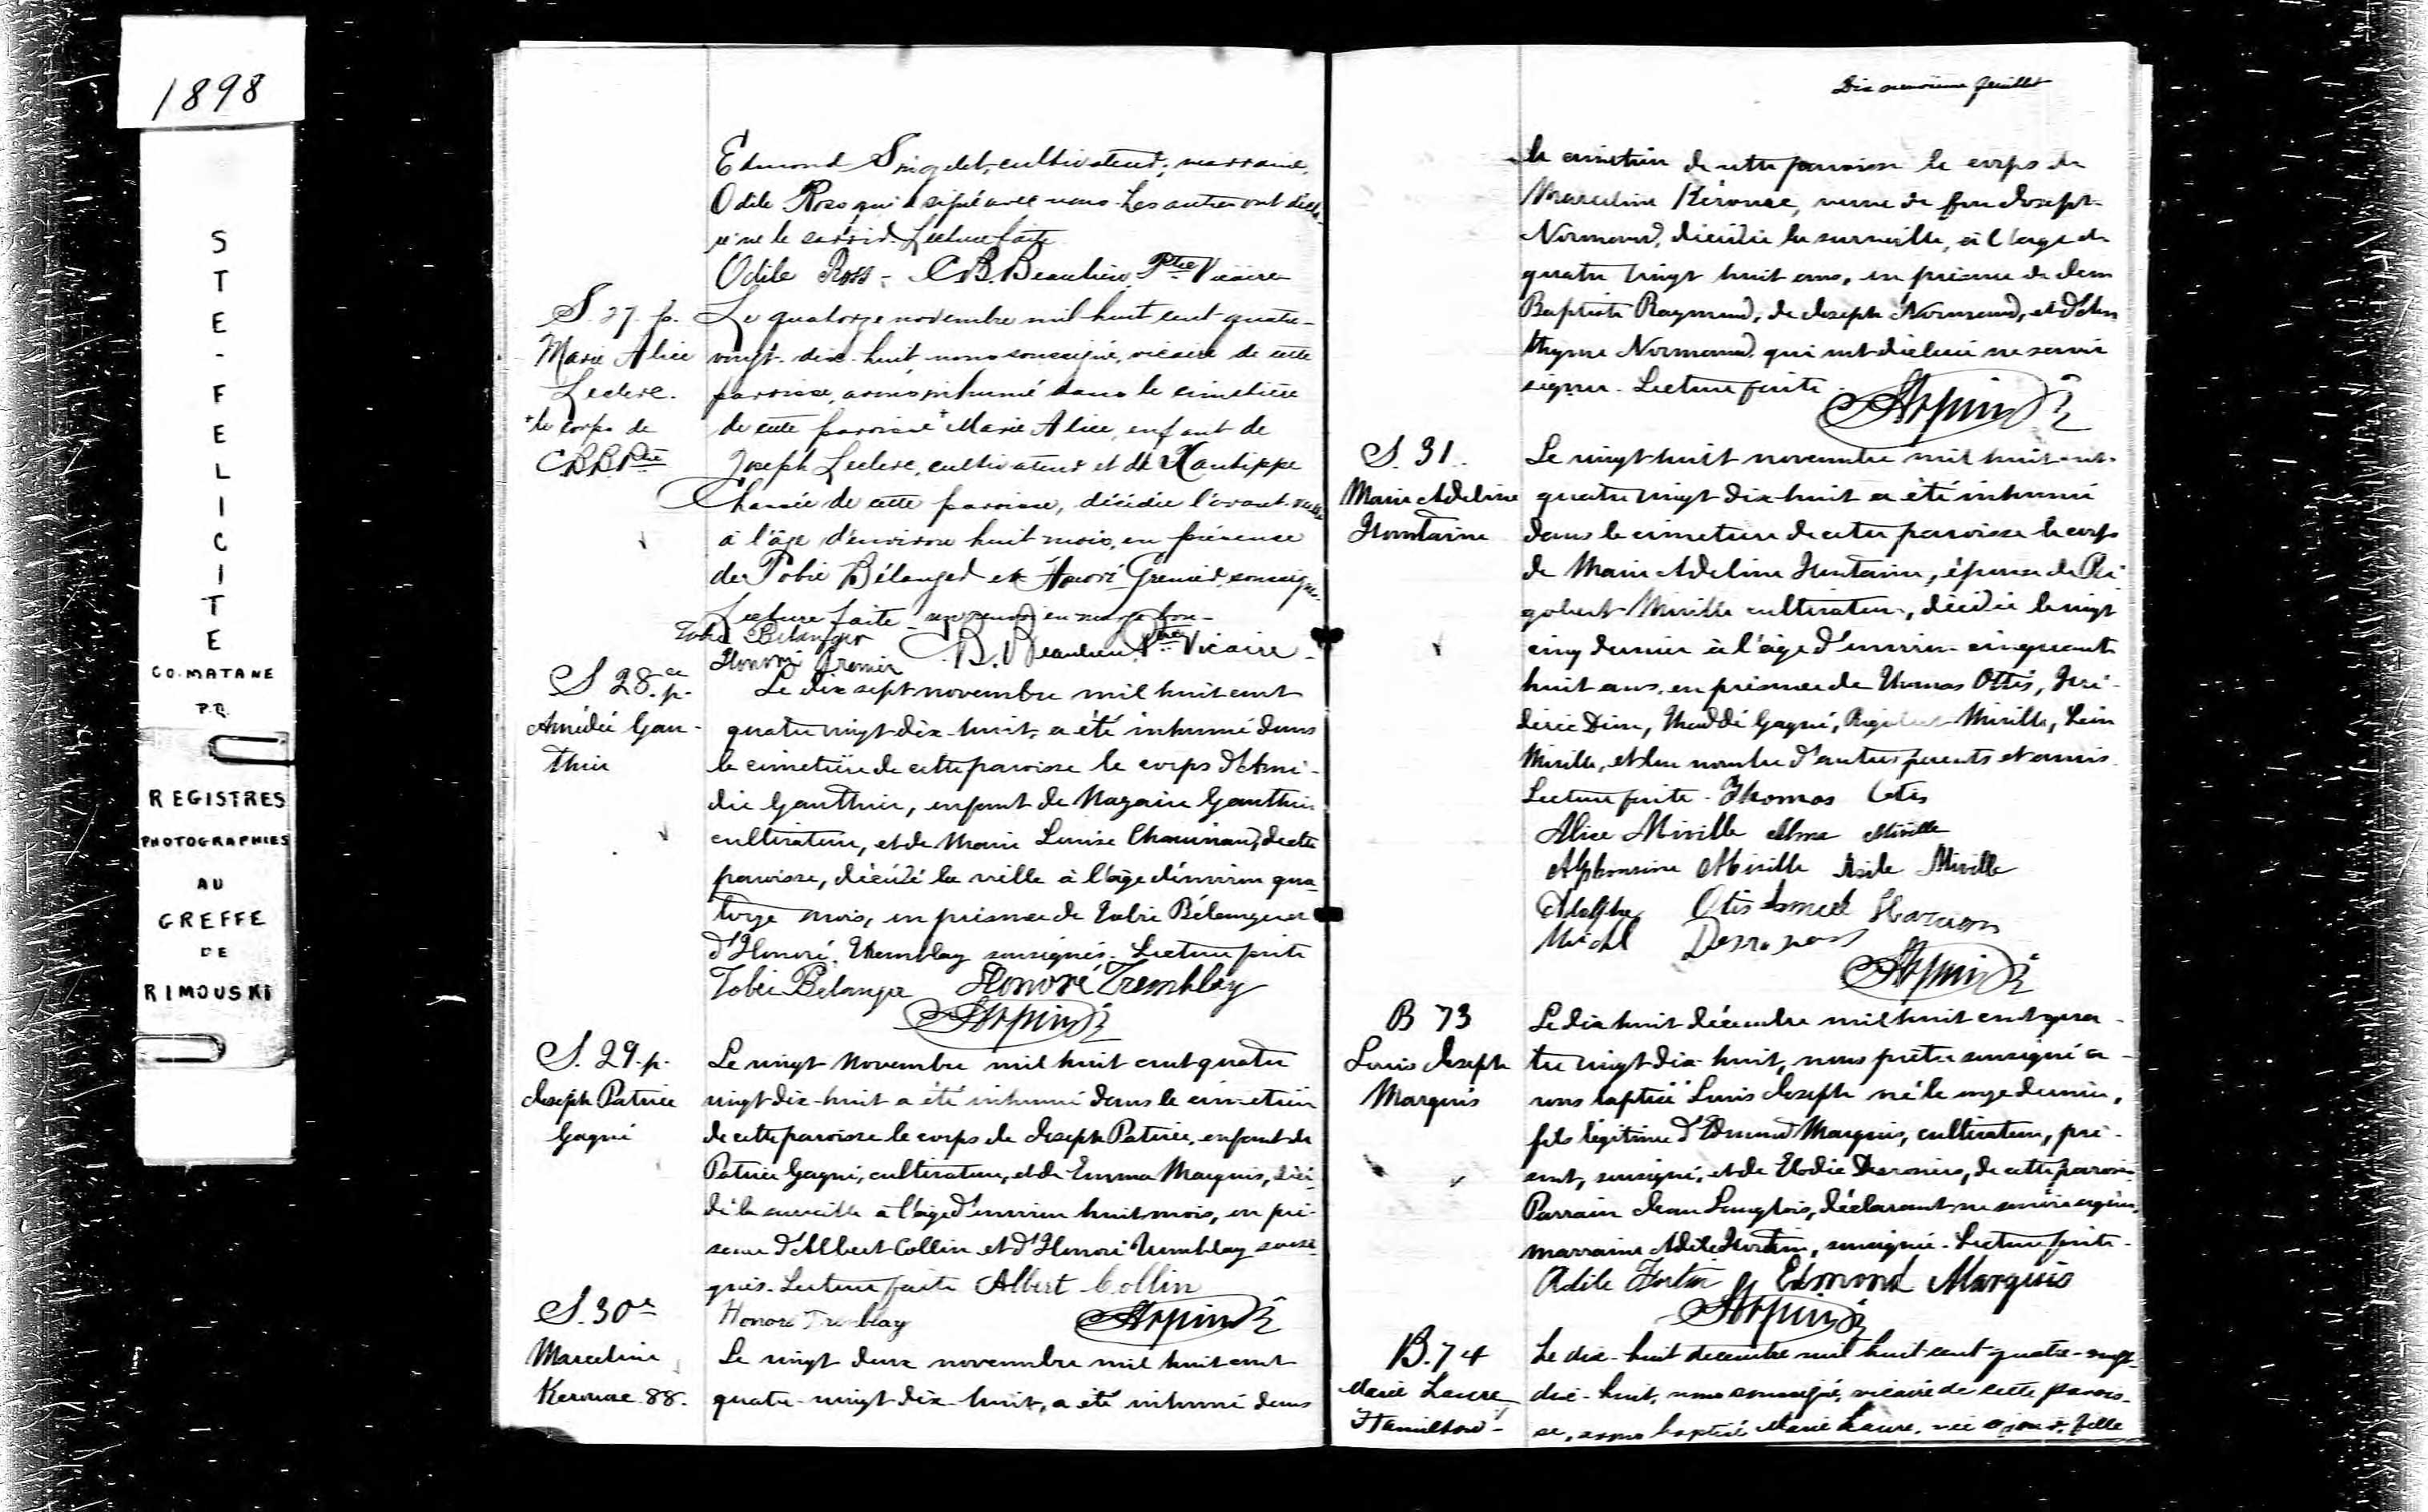 1898
STE-FELICITE
CO. MATANE
P.Q.
REGISTRES
PHOTOGRAPHIES
AU
GREFFE
DE
RIMOUSKI
Edmond cultivateur; marraine,
Odile Ross qui a signé avec nous. Les autres ont décla-
ré ne le savoir. Lecture faite
Odile Ross - C.B. Beaulieu Ptre Vicaire
S. 27. p.
Marie Alice
Leclerc.
+ le corps de
C.B.B. Ptre
Le quatorze novembre mil huit cent quatre-
vingt-dix-huit, nous soussigné, vicaire de cette
paroisse, avons inhumé dans le cimetière
de cette paroisse + Marie Alice, enfant de
Joseph Leclerc, cultivateur et de Xantippe
de cette paroisse, décédée l'avant-veille
à l'âge d'environ huit mois, en présence
de Tobie Bélanger et Honoré Grenier, soussignés.
Lecture faite - un renvoi en marge bon -
Tobie Belanger
Honoré Grenier C.B. Beaulieu Ptre Vicaire -
S 28. p.
Amédée Gau-
thier
Le dix sept novembre mil huit cent
quatre vingt-dix-huit, a été inhumé dans
le cimetière de cette paroisse le corps d'Amé-
dée Gauthier, enfant de Nazaire Gauthier
cultivateur, et de Marie Louise de cette
paroisse, décédé la veille à l'âge d'environ qua-
torze mois, en présence de Tobie Bélanger et
d'Honoré Tremblay soussignés. Lecture faite
Tobie Belanger Honoré Tremblay
S. 29. p.
Joseph Patrice
Gagné
Le vingt novembre mil huit cent quatre
vingt-dix-huit a été inhumé dans le cimetière
de cette paroisse le corps de Joseph Patrice, enfant de
Patrice Gagné, cultivateur, et de Emma Marquis, décé-
dé la surveille à l'âge d'environ huit mois, en pré-
sence d'Albert Collin et d'Honoré Tremblay soussi-
gnés. Lecture faite Albert Collin
Honoré Tremblay
S. 30
Marceline
Kerouac 88.
Le vingt deux novembre mil huit cent
quatre-vingt-dix-huit, a été inhumé dans
Dix neuvième feuillet
le cimetière de cette paroisse le corps de
Marceline Kérouac, veuve de feu Joseph
Normand, décédée la surveille, à l'âge de
quatre vingt huit ans, en présence de Jean
Baptiste Raymond, de Joseph Normand, et d'An-
thyme Normand, qui ont déclaré ne savoir
signer. Lecture faite.
S. 31.
Marie Adeline
Fountaine
Le vingt-huit novembre mil huit cent
quatre vingt dix-huit a été inhumé
dans le cimetière de cette paroisse le corps
de Marie Adeline, épouse de Ri-
gobert Miville cultivateur, décédée le vingt
cinq dernier à l'âge d'environ cinquante
huit ans, en présence de Thomas Ottis,
Gagné, Rigobert Miville,
Miville, et d'un nombre d'autres parents et amis.
Lecture faite. Thomas Otis
Alice Miville Alma Miville
Alphonsine Miville Miville
Adolphe Otis
B 73
Louis Joseph
Marquis
Le dix huit décembre mil huit cent qua-
tre vingt dix-huit, nous prêtre soussigné a-
vons baptisé Louis Joseph né le onze dernier,
fils légitime d'Edmond Marquis, cultivateur, pré-
sent, soussigné, et de Elodie Desrosiers, de cette paroisse.
Parrain Jean Langlois, déclarant ne savoir signer,
marraine Adile Fortin, soussignée. Lecture faite.
Adile Fortin Edmond Marquis
B. 74
Marie Laure
Hamilton -
Le dix-huit décembre mil huit cent quatre-vingt-
dix-huit, nous soussigné, vicaire de cette parois-
se, avons baptisé Marie Laure, née, fille